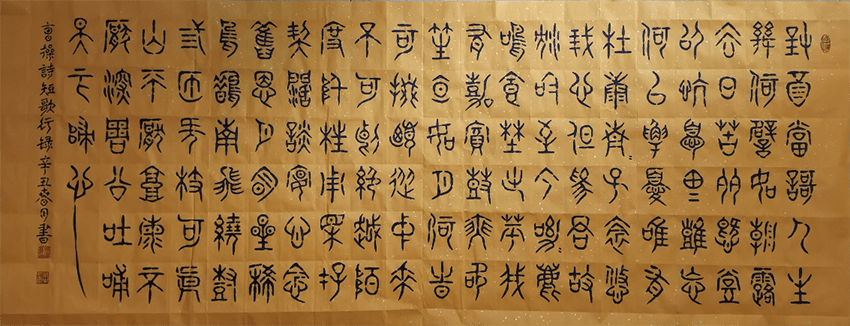 對酒當謌人生
幾何譬如朝露
去日苦多慨當
以忼憂思難忘
何以解憂唯有
杜康青=子衿悠=
我心但為君故
沈吟至今呦=鹿
鳴食埜之苹我
有嘉賓鼓瑟吹
笙明如月何時
可掇憂從中來
不可斷絕越陌
度阡枉用相存
契闊談讌心念
舊恩月明星稀
烏鵲南飛繞樹
弎匝何枝可依
山不厭高海不
厭深周公吐哺
天下歸心
曹操詩短歌行錄辛丑春月書